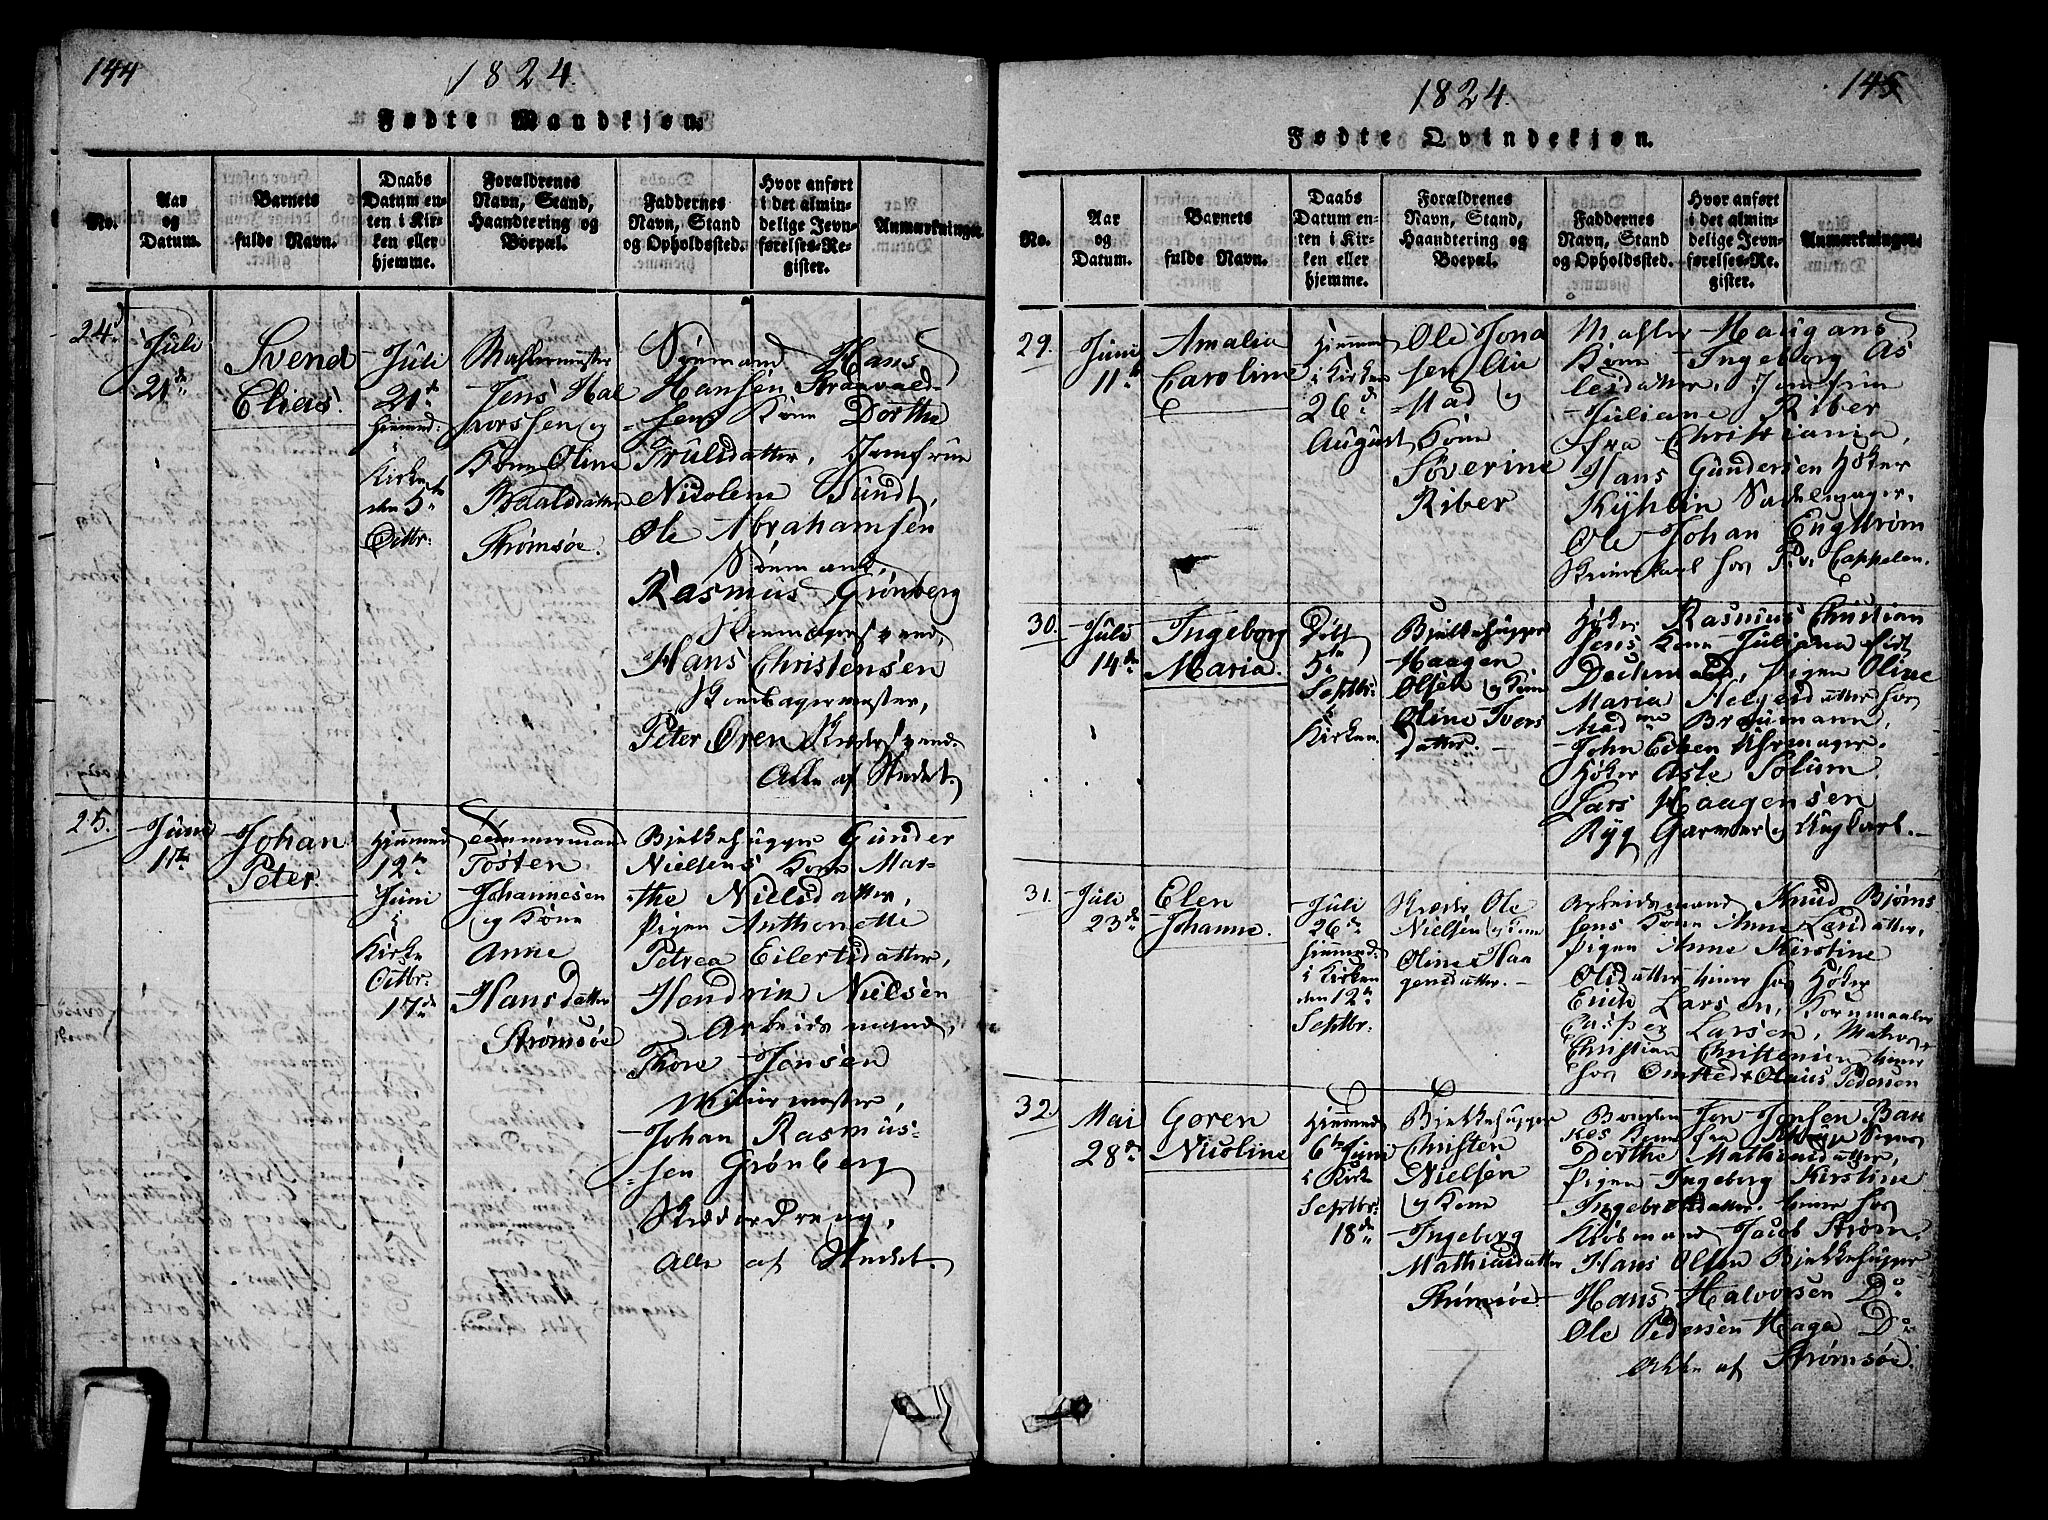 144
1824.
Fødte Mandkjøn.
No.
Aar
og
Datum.
Barnets
fulde Navn.
Daabs
Datum en-
ten i Kir-
ken eller
hjemme.
Forældrenes
Navn, Stand,
Haandtering og
Boepæl.
Faddernes
Navn, Stand
og Opholdssted.
Hvor anført
i det almin-
delige Jevn-
førelses-Re-
gister.
Anmærkninger.
24.
Juli
21de
Svend
Elias.
Juli
21de
hjemed:
i
Kirken
den 5te
Octbr:
Jens Hal
vorssen og
Kone Oline
Paalsdatter
Strømsøe.
Sømand Hans
Hansen
sens Kone Dorthe
Trulsdatter, Jomfrue
Nicolene Sundt,
Ole Abrahamsen
Sømand,
Rasmus Grønberg
Hans Christensen
Peter Oren
Alle af Stedet.
25.
Juni
11te
Johan
Peter.
Hjemmed
12te
Juni
i
Kirke
Octbr.
17de
Tømmermand
Tosten
Johannesen
og Kone
Anne
Hansdatter
Strømsøe
Bjelkehugger Gunder
Nielsens Kone Mar-
the Nielsdatter,
Pigen Anthonette
Petrea Eilertsdatter,
Hendrik Nielsen
Arbeidsmand,
Thore Jensen
Muurmester,
Johan Rasmus-
sen Grønberg
Skrædderdreng,
Alle af Stedet.
145
1824.
Fødte Qvindekjøn.
No.
Aar
og
Datum.
Barnets
fulde Navn.
Daabs
Datum en-
ten i Kir-
ken eller
hjemme.
Forældrenes
Navn, Stand,
Haandtering og
Boepæl.
Faddernes
Navn, Stand
og Opholdssted.
Hvor anført
i det almin-
delige Jevn-
førelses-Re-
gister.
Anmærkninger.
29.
Juni
11te
Amalia
Caroline
Hjemme
i Kirken
26de
August
Ole Jona
sen
og
Kone
Severine
Riber
Kone Ingeborg As
lesdatter, Jomfrue
Juliane Riber
fra Christiania,
Hans Gundersen Høker
Kyhlin Sadelmager,
Ole Johan Engstrøm
hos P. v. Cappelen.
30.
Juli
14de
Ingeborg
Maria.
Døbt
5te
Septbr:
i
Kirken.
Bjelkehugger
Haagen
Olsen og Kone
Oline Ivers
datter.
Høker Rasmus Christian
Jens Kone Juliana født
Pigen Oline
Maria Helgesdatter hos
Madme Braumann,
John Uhrmager.
Høker Asle Solum
Lars Haagensen
Ryg Garver og Ungkarl.
31.
Juli
23de
Elen
Johanne.
Juli
26de
hjemmed:
i Kirken
den 12te
Septbr:
Skræder Ole
Nielsen og Kone
Oline Haa
gensdatter.
Arbeidsmand Knud Bjørns
sens Kone Anne Larsdatter,
Pigen Anne Kirstine
Olsdatter tiener hos Høker
Erich Larsen, Kornmaaler
Casper Larsen, Matros
Christian Christensen tiener
hos Omsted & Olaus Pedersen
32.
Mai
28de
Goren
Nicoline
Hjemmed
6te Juni
i Kirk
Septbr:
18de
Bjelkehugger
Christen
Nielsen
og Kone
Ingeborg
Mathiasdatter
Strømsøe
Bonden Jon Jonsen Bak
kes Kone fra
Dorthe Mathiasdatter,
Pigen Ingeborg Kirstine
Ingebretsdatter tiener hos
Kiøbmand Jacob Strøm.
Hans Olsen Bjelkehugger
Hans Halvorsen Do
Ole Pedersen Haga Do
Alle af Strømsøe.